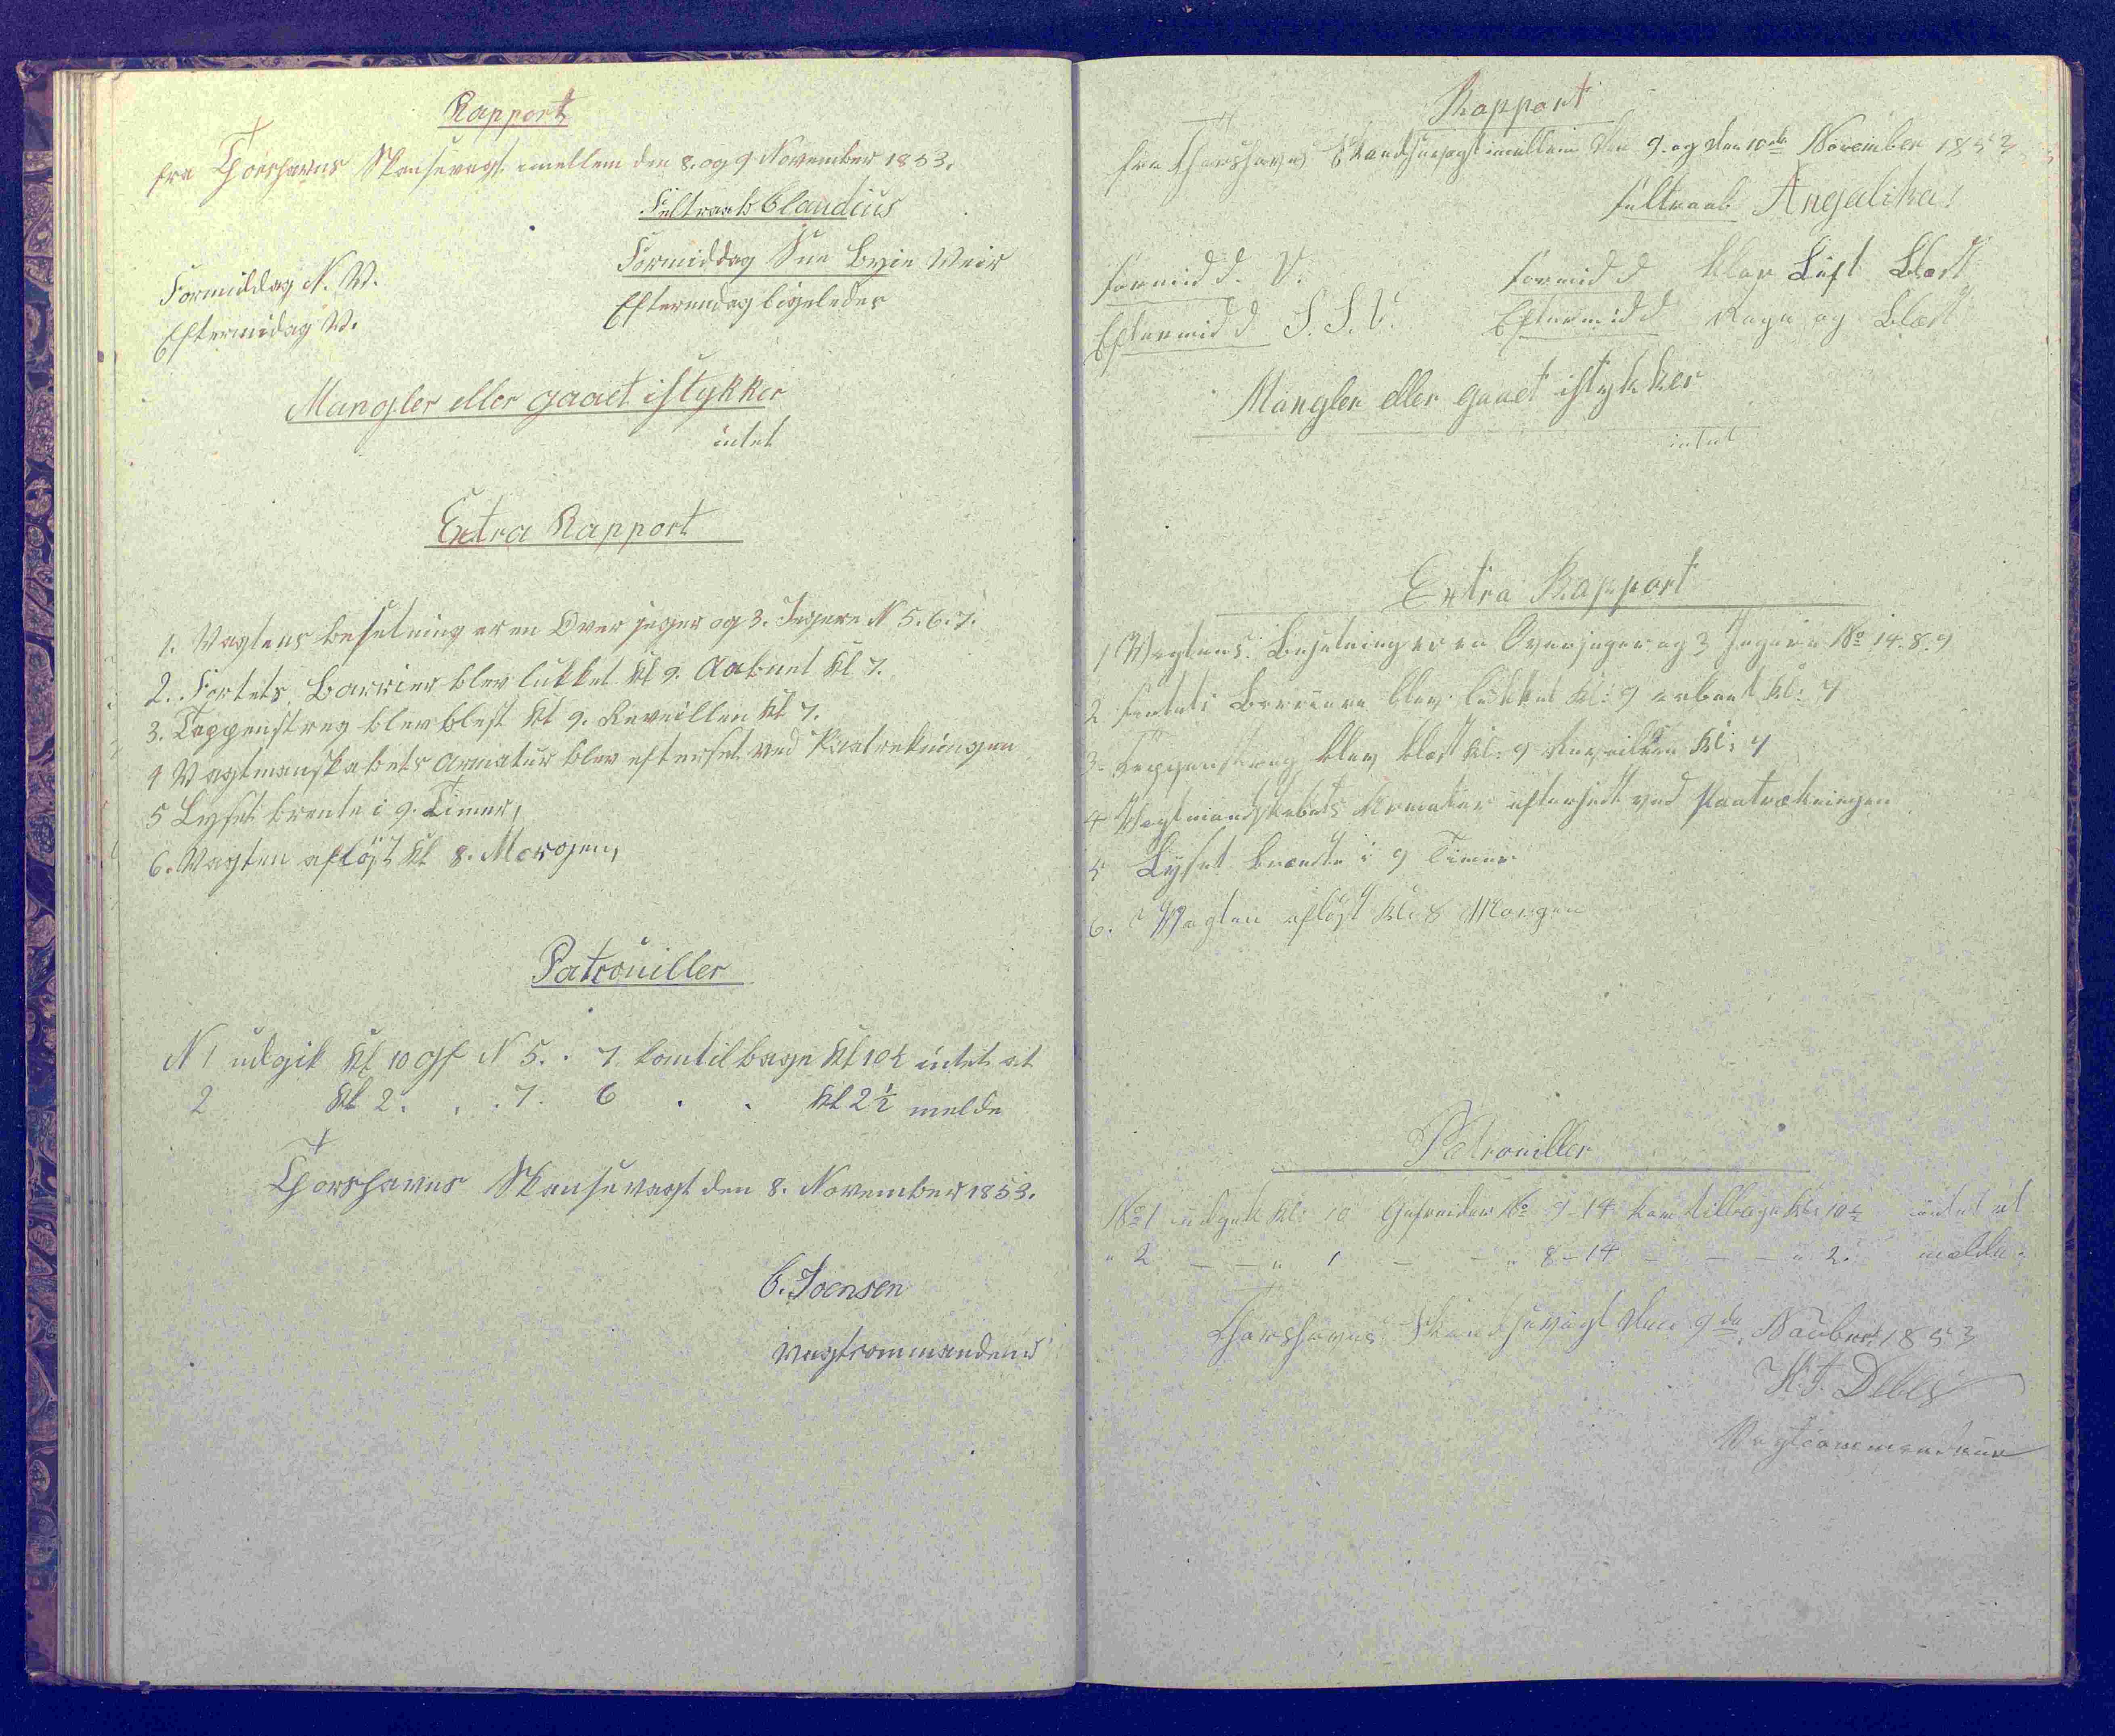 Rapport
fra Thorshavns Skansevagt imellem den 8. og 9 November 1853.
Feltraab Claudius
Formiddag N. W.
Formiddag Sne Byie Veir
Eftermidag W.
Eftermidag ligeledes
Mangler eller gaaet istykker
intet
Extra Rapport
1. Vagtens besetning er en Over jeger og 3. Jegere N 5. 6. 7.
2. Fortets Barrier blev lukket Kl 9. Aabnet Kl 7.
3. Tappenstreg blev blest Kl 9. Reveillen Kl 7.
4 Vagtmanskabets Armatur blev efterset ved Paatrekningen
5 Lyset brente i 9. Timer,
6. Vagten afløst Kl 8. Morgen,
Patrouiller
N 1 udgik Kl 10 Gf N 5. . 7 kom tilbage Kl 10½ intet at
2 Kl 2. . . 7. 6 . . Kl 2½ melde
Thorshavns Skansevagt den 8. November 1853.
C. Joensen
Vagtcommandeur
Rapport
fra Thorshavns Skandsevagt imellem den 9. og den 10de November 1853
Feltraab Angelika!
Formidd. V.
Formidd Klar Luft Blæst
Eftermidd S. S. V.
Eftermidd Regn og Blæst
Mangler eller gaaet istykker
intet
Extra Rapport
1 Vagtens Besetning er en Overjeger og 3 Jegere No 14. 8. 9
2 Fortets Barriere blev lukket Kl: 9 aabnet Kl: 7
3. Tappenstreg blev blæst Kl: 9 Reveillen Kl: 7
4 Vagtmandskabets Armatur efterseet ved Paatrækningen
5 Lyset brændte i 9 Timer
6. Vagten afløst Kl: 8 Morgen
Patrouiller
No 1 udgik Kl: 10 Gefreider No 9-14 kom tilbage Kl: 10½ intet at
" 2 — — " 1 — — " 8-14 — — — " 2. melde.
Thorshavns Skandsevagt den 9de Novber 1853
H. J. Debes
Vagtcommandeur